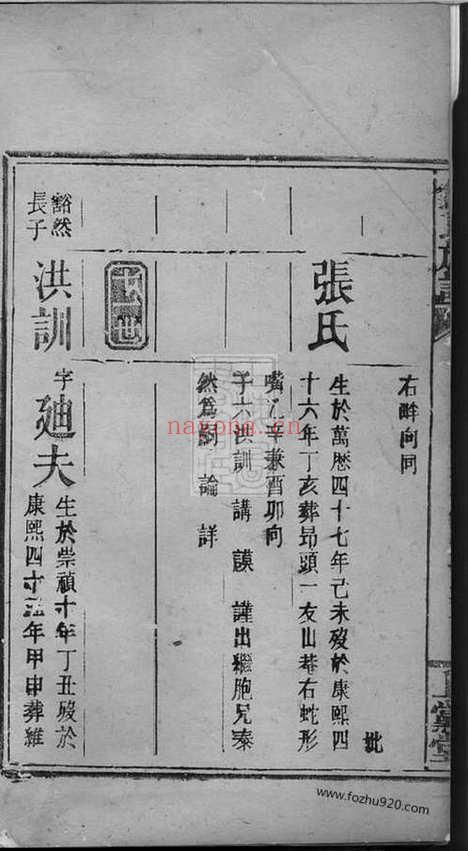 右畔向同
張氏
生於萬歷四十七年己未殁於康熙四
十六年丁亥葬昻頭一友山菴右蛇形
嘴乙辛兼酉卯向
子六洪訓 講 謨 謹出繼胞兄泰
然為嗣 論 詳
豁然
長子
洪訓
字
廸夫
生於崇禎十年丁丑殁於
康熙四十三年甲申葬維
nayona.cn
www.fozhu920.com